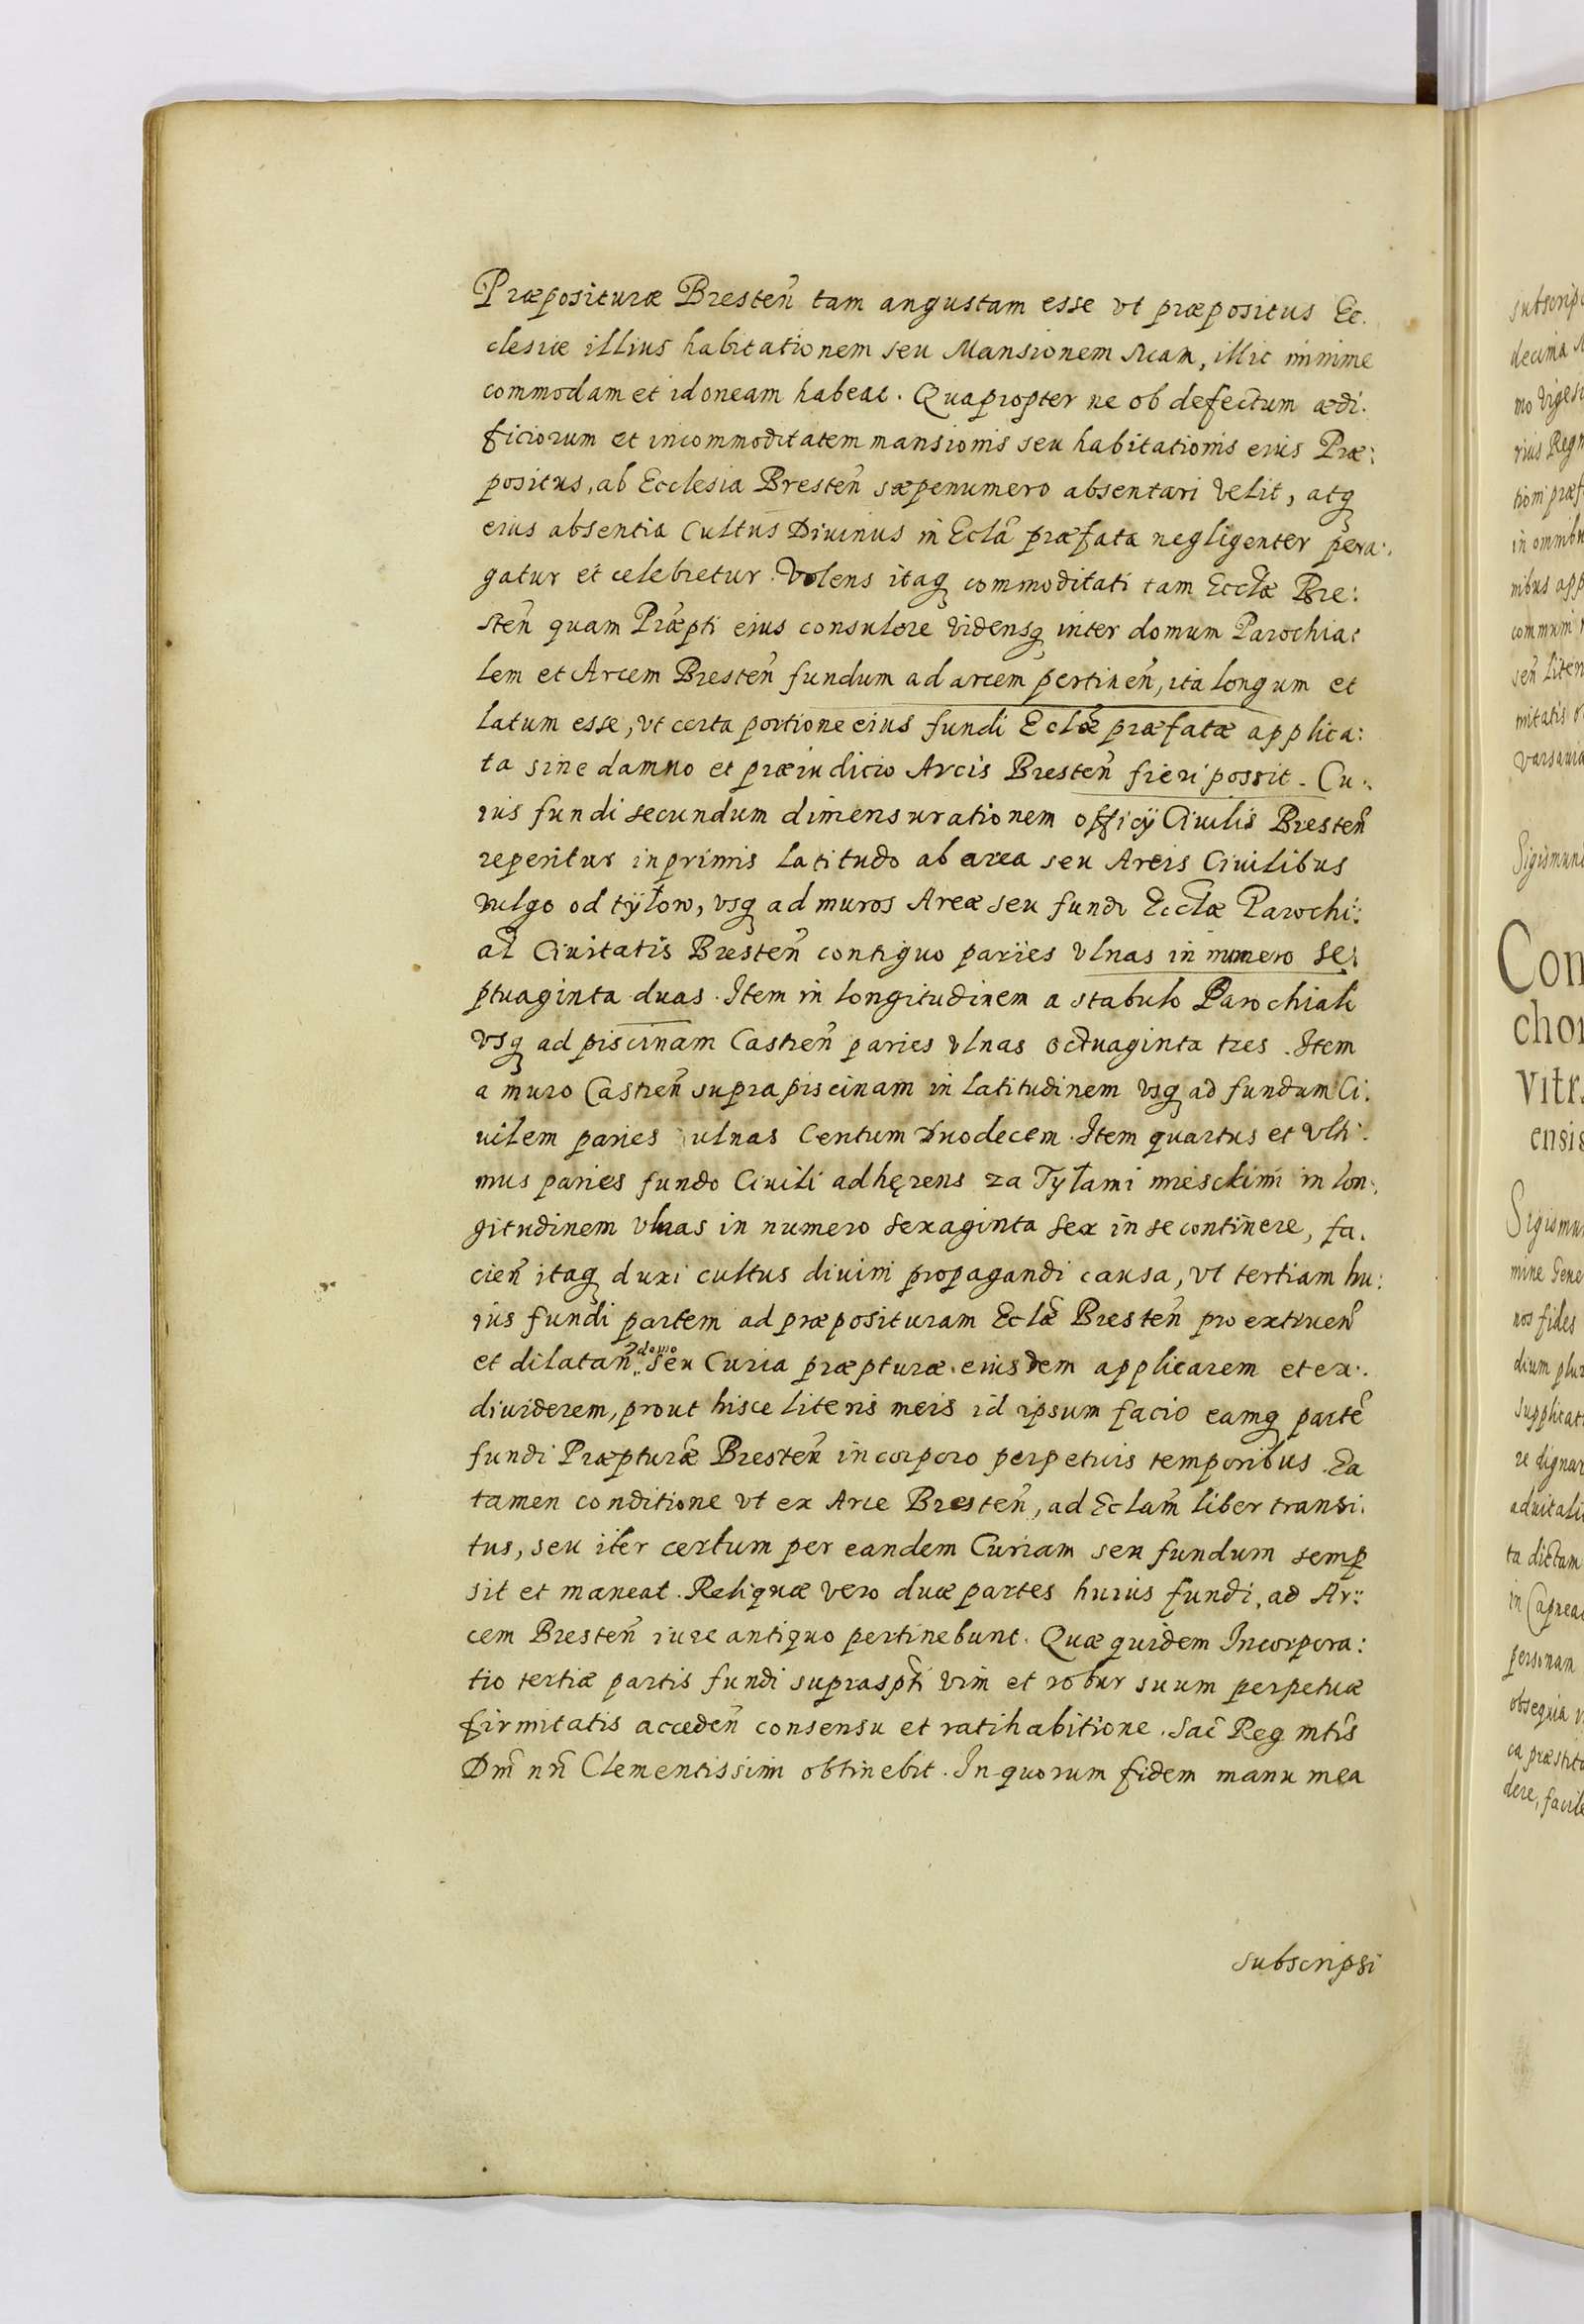 Præposituræ Bresteñ tam angustam esse vt præpositus Ec.
clesiæ illius habitationem seu Mansionem suam, illic minime
commodam et idoneam habeat. Quapropter ne ob defectum ædi.
ficiorum et incommoditatem mansionis seu habitationis eius Præ:
positus, ab Ecclesia Bresteñ sæpenumero absentari velit, atq
eius absentia Cultus Diuinus in Eclã præfata negligenter pera:.
gatur et celebretur. Volens itaq commoditati tam Ecclæ Bre:
steñ quam Præpti eius consulere vidensq inter domum Parochia:
lem et Arcem Bresteñ fundum ad arcem pertineñ, ita longum et
latum esse, vt certa portione eius fundi Eclæ præfatæ applica:
ta sine damno et præiudicio Arcis Bresteñ fieri possit. Cu:.
ius fundi secundum dimensurationem officÿ Ciuilis Bresteñ
reperitur inprimis latitudo ab area seu Areis Ciuilibus
vulgo od tÿłow, vsq ad muros Areæ seu fundi Ecclæ Parochi:
al Ciuitatis Bresteñ contiguo paries vlnas in numero se:
ptuaginta duas. Item in longitudinem a stabulo Parochiali
vsq ad piscinam Castreñ paries vlnas octuaginta tres. Item
a muro Castreñ supra piscinam in latitudinem vsq ad fundum Ci:
uilem paries ulnas Centum duodecem. Item quartus et vlti:
mus paries fundo Ciuili adhęrens za Tyłami mieskimi in lon:.
gitudinem vlnas in numero sexaginta sex in se continere, fa.
cieñ itaq duxi cultus diuini propagandi causa, vt tertiam hu:
ius fundi partem ad præposituram Eclæ Bresteñ pro extrueñ
et dilatañ domo seu Curia præpturæ eiusdem applicarem et ex:.
diuiderem, prout hisce literis meis id ipsum facio eamq partẽ
fundi Præpturæ Bresteñ incorporo perpetuis temporibus Ea
tamen conditione vt ex Arce Bresteñ, ad Eclam liber transi:
tus, seu iter certum per eandem Curiam seu fundum semp
sit et maneat. Reliquæ vero duæ partes huius fundi, ad Ar::
cem Bresteñ iure antiquo pertinebunt. Quæ quidem Incorpora:
tio tertiæ partis fundi supraspti vim et robur suum perpetuæ
firmitatis accedeñ consensu et ratihabitione. Sac Reg mtis
Dm̃ nr̃i Clementissimi obtinebit. In quorum fidem manu mea
subscripsi